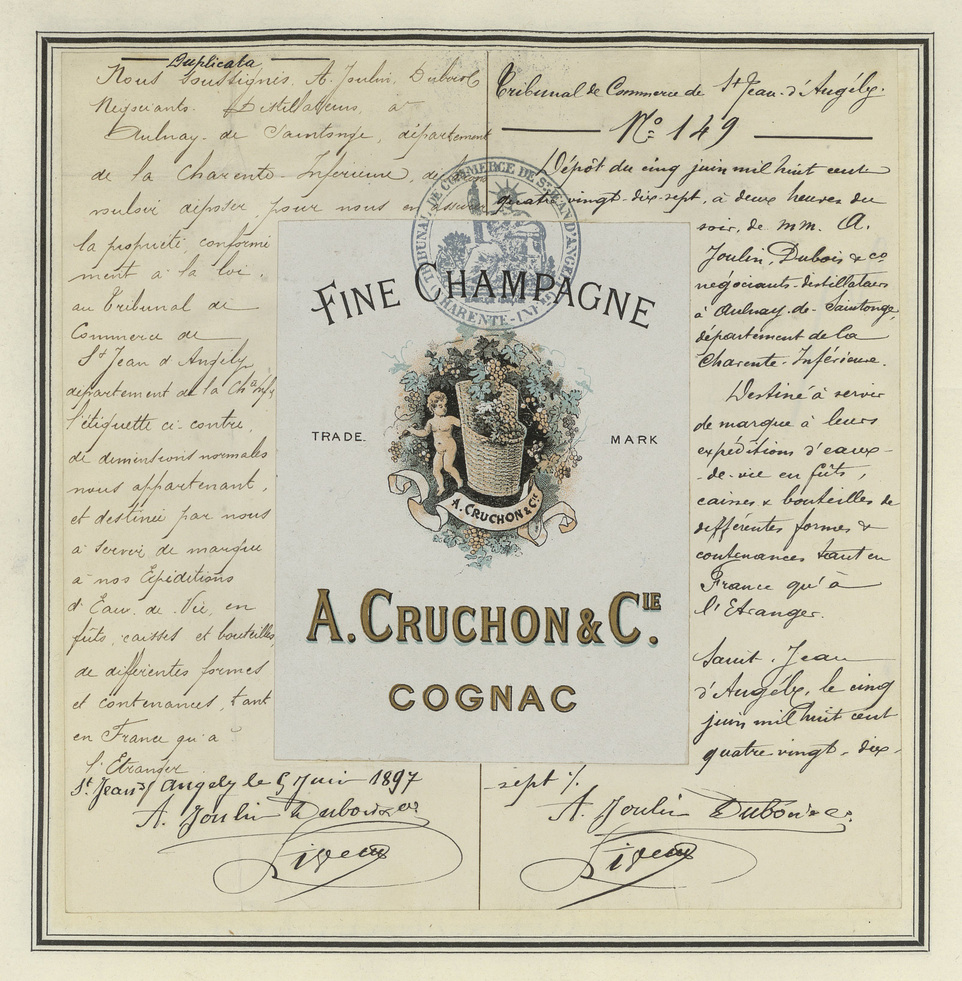 Duplicata
Nous soussignés, A. Joulin, Dubois & Co
Négociants Distillateurs, à
Aulnay-de-Saintonge, département
de la Charente-Inférieure,
vouloir déposer pour nous en assurer
la propriété conformé
ment à la loi.
au Tribunal de
Commerce de
St Jean d'Angély,
département de la Chte Infre
l'étiquette ci-contre,
de dimensions normales
nous appartenant,
et destinée par nous
à servir de marque
à nos Expéditions
d'Eaux-de-Vie, en
fûts, caisses et bouteilles,
de différentes formes
et contenances, tant
en France qu'à
l'Etranger
St Jean d'Angely le 5 Juin 1897
A. Joulin Dubois & Co
Tribunal de Commerce de St Jean-d'Angély.
No 149
Dépôt du cinq juin mil huit cent
quatre-vingt-dix-sept, à deux heures du
soir, de MM. A.
Joulin, Dubois & Co
négociants-distillateurs
à Aulnay-de-Saintonge,
département de la
Charente-Inférieure.
Destiné à servir
de marque à leurs
expéditions d'eaux-
-de-vie en fûts,
caisses & bouteilles de
différentes formes &
contenances tant en
France qu'à
l'Etranger.
Saint-Jean
d'Angély, le cinq
juin mil huit cent
quatre vingt-dix-
sept /.
A. Joulin Dubois & Co.
TRIBUNAL DE COMMERCE DE ST JEAN D'ANGELY
CHARENTE-INFRE
FINE CHAMPAGNE
TRADE MARK
A. CRUCHON & CIE
A. CRUCHON & CIE.
COGNAC